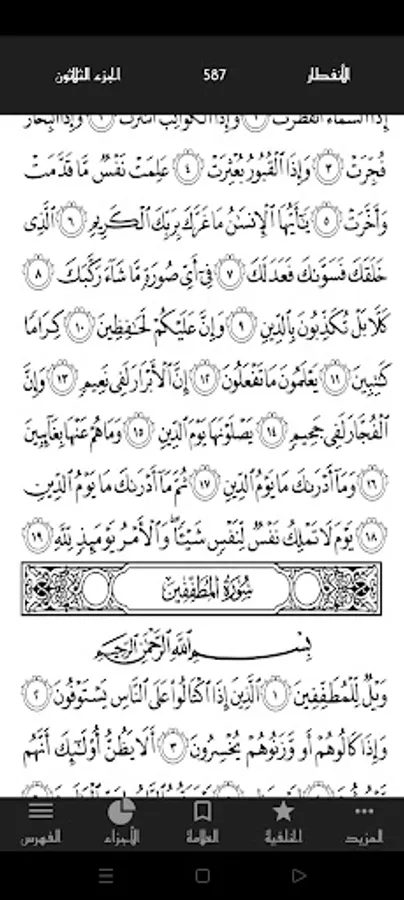 الأنفطار 587 الجزء الثلاثون
إِذَا السَّمَاءُ انفَطَرَتْ ١ وَإِذَا الْكَوَاكِبُ انتَثَرَتْ ٢ وَإِذَا الْبِحَارُ
فُجِّرَتْ ٣ وَإِذَا الْقُبُورُ بُعْثِرَتْ ٤ عَلِمَتْ نَفْسٌ مَّا قَدَّمَتْ
وَأَخَّرَتْ ٥ يَٰٓأَيُّهَا الْإِنسَٰنُ مَا غَرَّكَ بِرَبِّكَ الْكَرِيمِ ٦ الَّذِي
خَلَقَكَ فَسَوَّىٰكَ فَعَدَلَكَ ٧ فِيٓ أَيِّ صُورَةٍ مَّا شَآءَ رَكَّبَكَ ٨
كَلَّا بَلْ تُكَذِّبُونَ بِالدِّينِ ٩ وَإِنَّ عَلَيْكُمْ لَحَٰفِظِينَ ١٠ كِرَامًا
كَٰتِبِينَ ١١ يَعْلَمُونَ مَا تَفْعَلُونَ ١٢ إِنَّ الْأَبْرَارَ لَفِي نَعِيمٍ ١٣ وَإِنَّ
الْفُجَّارَ لَفِي جَحِيمٍ ١٤ يَصْلَوْنَهَا يَوْمَ الدِّينِ ١٥ وَمَا هُمْ عَنْهَا بِغَآئِبِينَ
١٦ وَمَآ أَدْرَىٰكَ مَا يَوْمُ الدِّينِ ١٧ ثُمَّ مَآ أَدْرَىٰكَ مَا يَوْمُ الدِّينِ
١٨ يَوْمَ لَا تَمْلِكُ نَفْسٌ لِّنَفْسٍ شَيْـًٔا ۖ وَالْأَمْرُ يَوْمَئِذٍ لِّلَّهِ ١٩
سُورَةُ المُطَفِّفِينَ
بِسْمِ اللَّهِ الرَّحْمَٰنِ الرَّحِيمِ
وَيْلٌ لِّلْمُطَفِّفِينَ ١ الَّذِينَ إِذَا اكْتَالُوا عَلَى النَّاسِ يَسْتَوْفُونَ ٢
وَإِذَا كَالُوهُمْ أَو وَّزَنُوهُمْ يُخْسِرُونَ ٣ أَلَا يَظُنُّ أُو۟لَٰٓئِكَ أَنَّهُم
المزيد الخلفية العلامة الأجزاء الفهرس